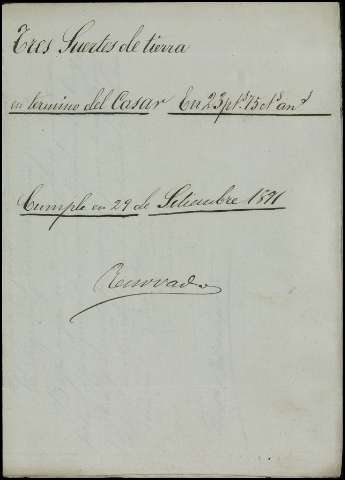 Tres Suertes de tierra
en termino del Casar En 23 pts 75 cts an.s
Cumple en 29 de Setiembre 1891
Renovado